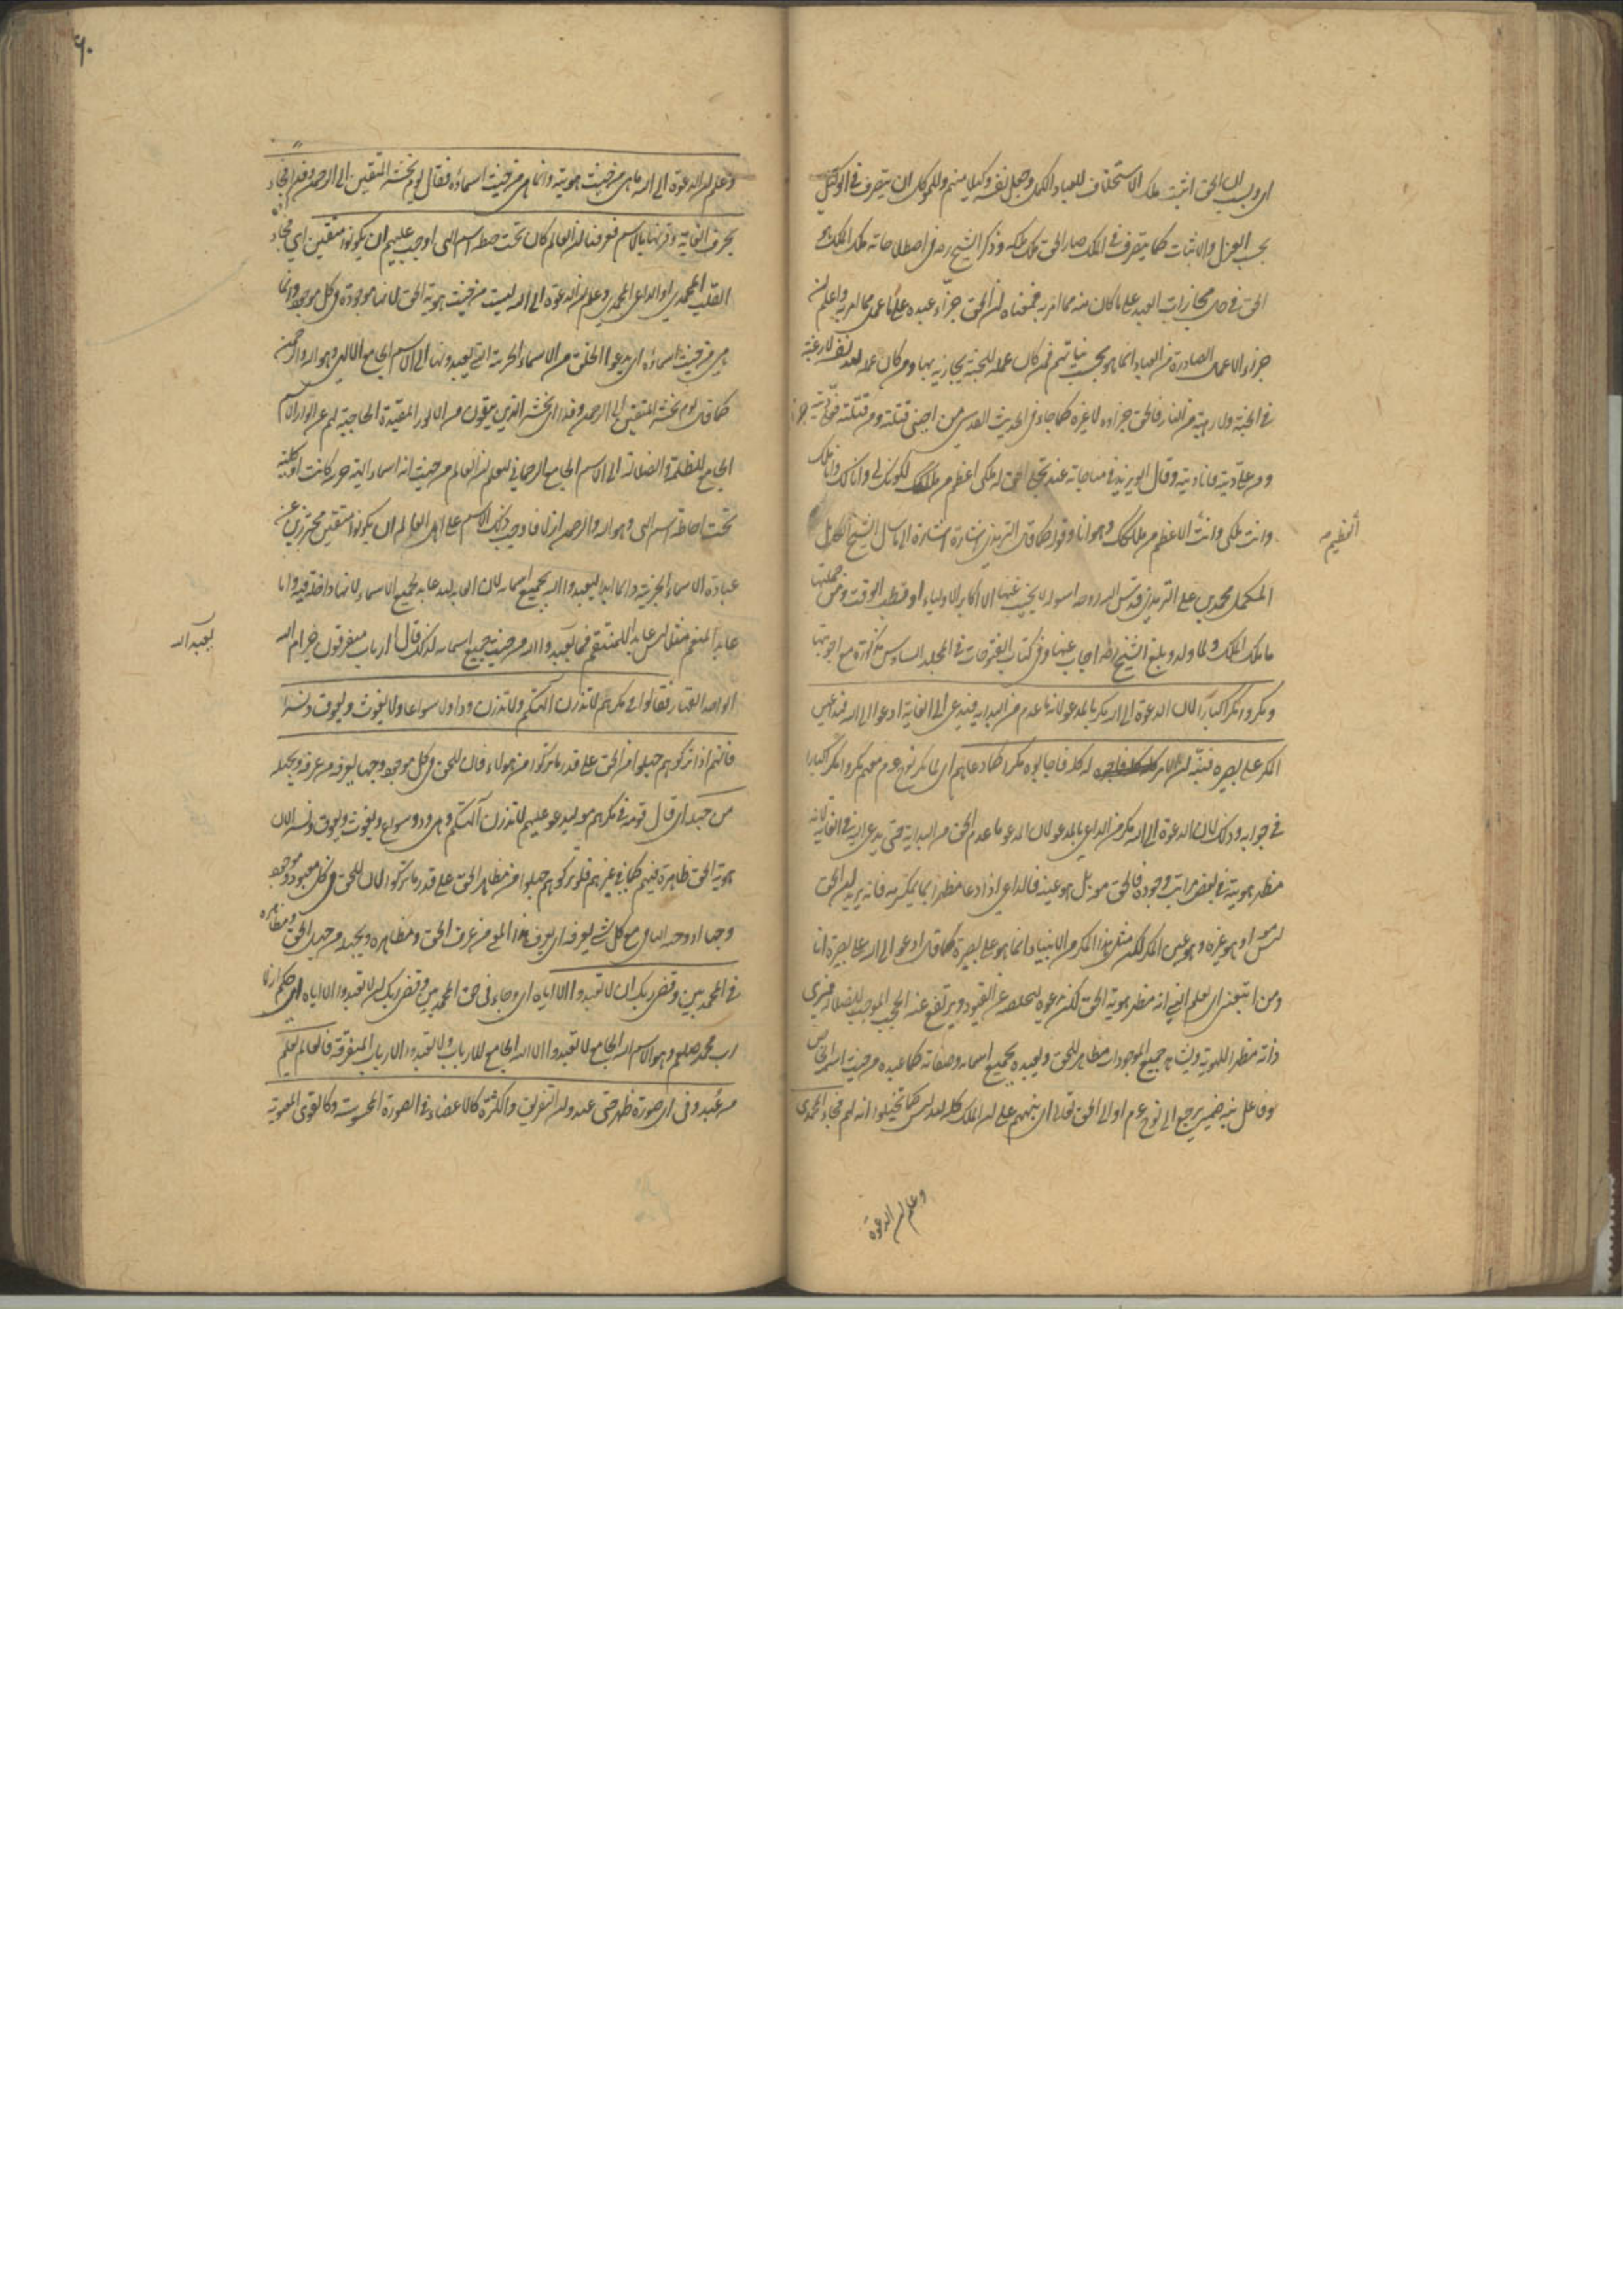 اى وبسبب ان الحق اثبت ملك الاستخلاف للعباد الكمل وجعل نفسه وكيلا منهم وللموكل ان يتصرف فى الوكيل
بحسب العزل والاثبات كما يتصرف فى الملك صار الحق ملك ملكه وذكر الشيخ رضه فى اصطلاحاته ملك الملك هو
الحق فى حال مجازات العبد على ما كان منه مما امر به فمعناه ان الحق جزاء عبده على ما عمل مما امر به واعلم ان
جزاء الاعمال الصادرة من العباد انما هو بحسب نياتهم فمن كان عمله للجنة يجازيه بها ومن كان عمله لله نفسه لا رغبة
فى الجنة ولا رهبة من النار فالحق جزاؤه لا غيره كما جاء فى الحديث القدسى من احبنى قتلته ومن قتلته فعلى ديته
ومن على ديته فانا ديته وقال ابو يزيد فى مناجاته عند تجلى الحق له ملكى اعظم من ملكك لكونك لى وانا لك وانا ملكك
وانت ملكى وانت الاعظم من ملكك وهو انا وقوله كما قال الترمذى اشارة الى ما سال الشيخ الكامل
المكمل محمد بن على الترمذى قدس الله روحه اسولة لا يجيب عنها الا اكابر الاولياء او قطب الوقت ومن جملتها
ما ملك الملك ولما ولد وبلغ الشيخ رضه اجاب عنها وفى كتاب الفتوحات فى المجلد السادس مذكورة مع اجوبتها
ومكروا مكرا كبارا لان الدعوة الى الله مكر بالمدعو لانه ما عدم من البداية فيدعى الى الغاية ادعوا الى الله فهذا عين
المكر على بصيرة فنبه ان الامر له كله فاجابوه مكرا كما دعاهم اى لما مكر نوح عم معهم مكروا مكرا كبارا
فى جوابه وذلك لان الدعوة الى الله مكر من الداعى بالمدعو لان المدعو ما عدم الحق من البداية حتى يدعى اليه فى الغاية لانه
مظهر هويته فى بعض مراتب وجوده فالحق معه بل هو عينه فالداعى اذا دعا مظهرا ما يمكر به فانه يريه ان الحق
ليس معه او هو غيره وهو عين المكر لكن مثل هذا المكر من الانبياء انما هو على بصيرة كما قال ادعو الى الله على بصيرة انا
ومن اتبعنى اى يعلم النبى انه مظهر هوية الحق لكن يدعوه ليخلصه عن القيود ويرتفع عنه الحجب الموجبة للضلال فيرى
ذاته مظهرا للهوية ويشاهد جميع الموجودات مظاهر للحق ويعبده بجميع اسمائه وصفاته كما عبده من حيث اسمه الخاص
وفاعل نبه ضمير يرجع الى نوح عم او الى الحق تعالى اى ينبههم على ان الملك كله لله ليس كما تخيلوا انه لهم فجاء المحمدى
وعلم ان الدعوة
العظيم
وعلم ان الدعوة الى الله ما هى من حيث هويته وانما هى من حيث اسماؤه فقال يوم نحشر المتقين الى الرحمن وفدا فجاء
بحرف الغاية وقرنها بالاسم فعرفنا ان العالم كان تحت حيطة اسم الهى اوجب عليهم ان يكونوا متقين اى فجاء
القلب المحمدى او الداعى المحمدى وعلم ان الدعوة الى الله ليست من حيث هوية الحق لانها موجودة فى كل موجود وانما
هى من حيث اسماؤه اى يدعوا الخلق من الاسماء الجزئية التى يعبدونها الى الاسم الجامع الالهى وهو الله والرحمن
كما قال يوم نحشر المتقين الى الرحمن وفدا اى نحشر الذين يتقون من الامور المقيدة الحاجبة لهم عن انوار الاسم
الجامع للظلمة والضلالة الى الاسم الجامع الرحمانى ليعلم ان العالم من حيث انه اسماء الهية جزئية كانت او كلية
تحت احاطة اسم الهى وهو الله والرحمن ازلا فاوجب ذلك الاسم على اهل العالم ان يكونوا متقين محترزين عن
عبادة الاسماء الجزئية دائما ابدا ليعبدوا الله بجميع اسمائه لان العابد لله عابد لجميع الاسماء لانها داخلة فيه واما
عابد المنعم مثلا ليس عابدا للمنتقم فما يعبدوا الله من حيث جميع اسمائه لذلك قال ا ارباب متفرقون خير ام الله
الواحد القهار فقالوا فى مكرهم لا تذرن آلهتكم ولا تذرن ودا ولا سواعا ولا يغوث ويعوق ونسرا
فانهم اذا تركوهم جهلوا من الحق على قدر ما تركوا من هؤلاء فان للحق فى كل موجود وجها يعرفه من عرفه ويجهله
من جهله اى قال قومه فى مكرهم معه ليدعو عليهم لا تذرن آلهتكم وهى ود وسواع ويغوث ويعوق ونسر لان
هوية الحق ظاهرة فيهم كما فى غيرهم فلو تركوهم جهلوا من مظاهر الحق على قدر ما تركوا لان للحق فى كل معبود وموجود
وجها او وجه الباقى مع كل شئ يعرفه اى يعرف هذا المعنى من عرف الحق ومظاهره ويجهله من جهل الحق ومظاهره
فى المحمديين وقضى ربك ان لا تعبدوا الا اياه اى وجاء فى حق المحمديين وقضى ربك ان لا تعبدوا الا اياه اى حكم ازلا
رب محمد صلعم وهو الاسم الله الجامع لا تعبدوا الا الله الجامع للارباب ولا تعبدوا الارباب المتفرقة فالعالم يعلم
من عبد وفى اى صورة ظهر حتى عبد وان التفريق والكثرة كالاعضاء فى الصورة المحسوسة وكالقوى المعنوية
يعبد الله
٦٠